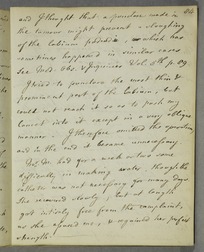 84
and I thought that a puncture made in
the tumour might prevent a sloughing
of the labium pudendi, which has
sometimes happened in similar cases
See Med. Obs. & Inquiries Vol. 5th p. 89.
I tried to puncture the most thin &
prominent part of the labium, but
could not reach it so as to push my
Lancet into it except in a very oblique
manner. I therefore omitted the operation,
and in the end it became unnecessary
She had for a week or two some
difficulty in making water, though the
catheter was not necessary for many days.
She recovered slowly, but at length
got entirely free from the complaint,
as she assured me, & regained her perfect
strength.